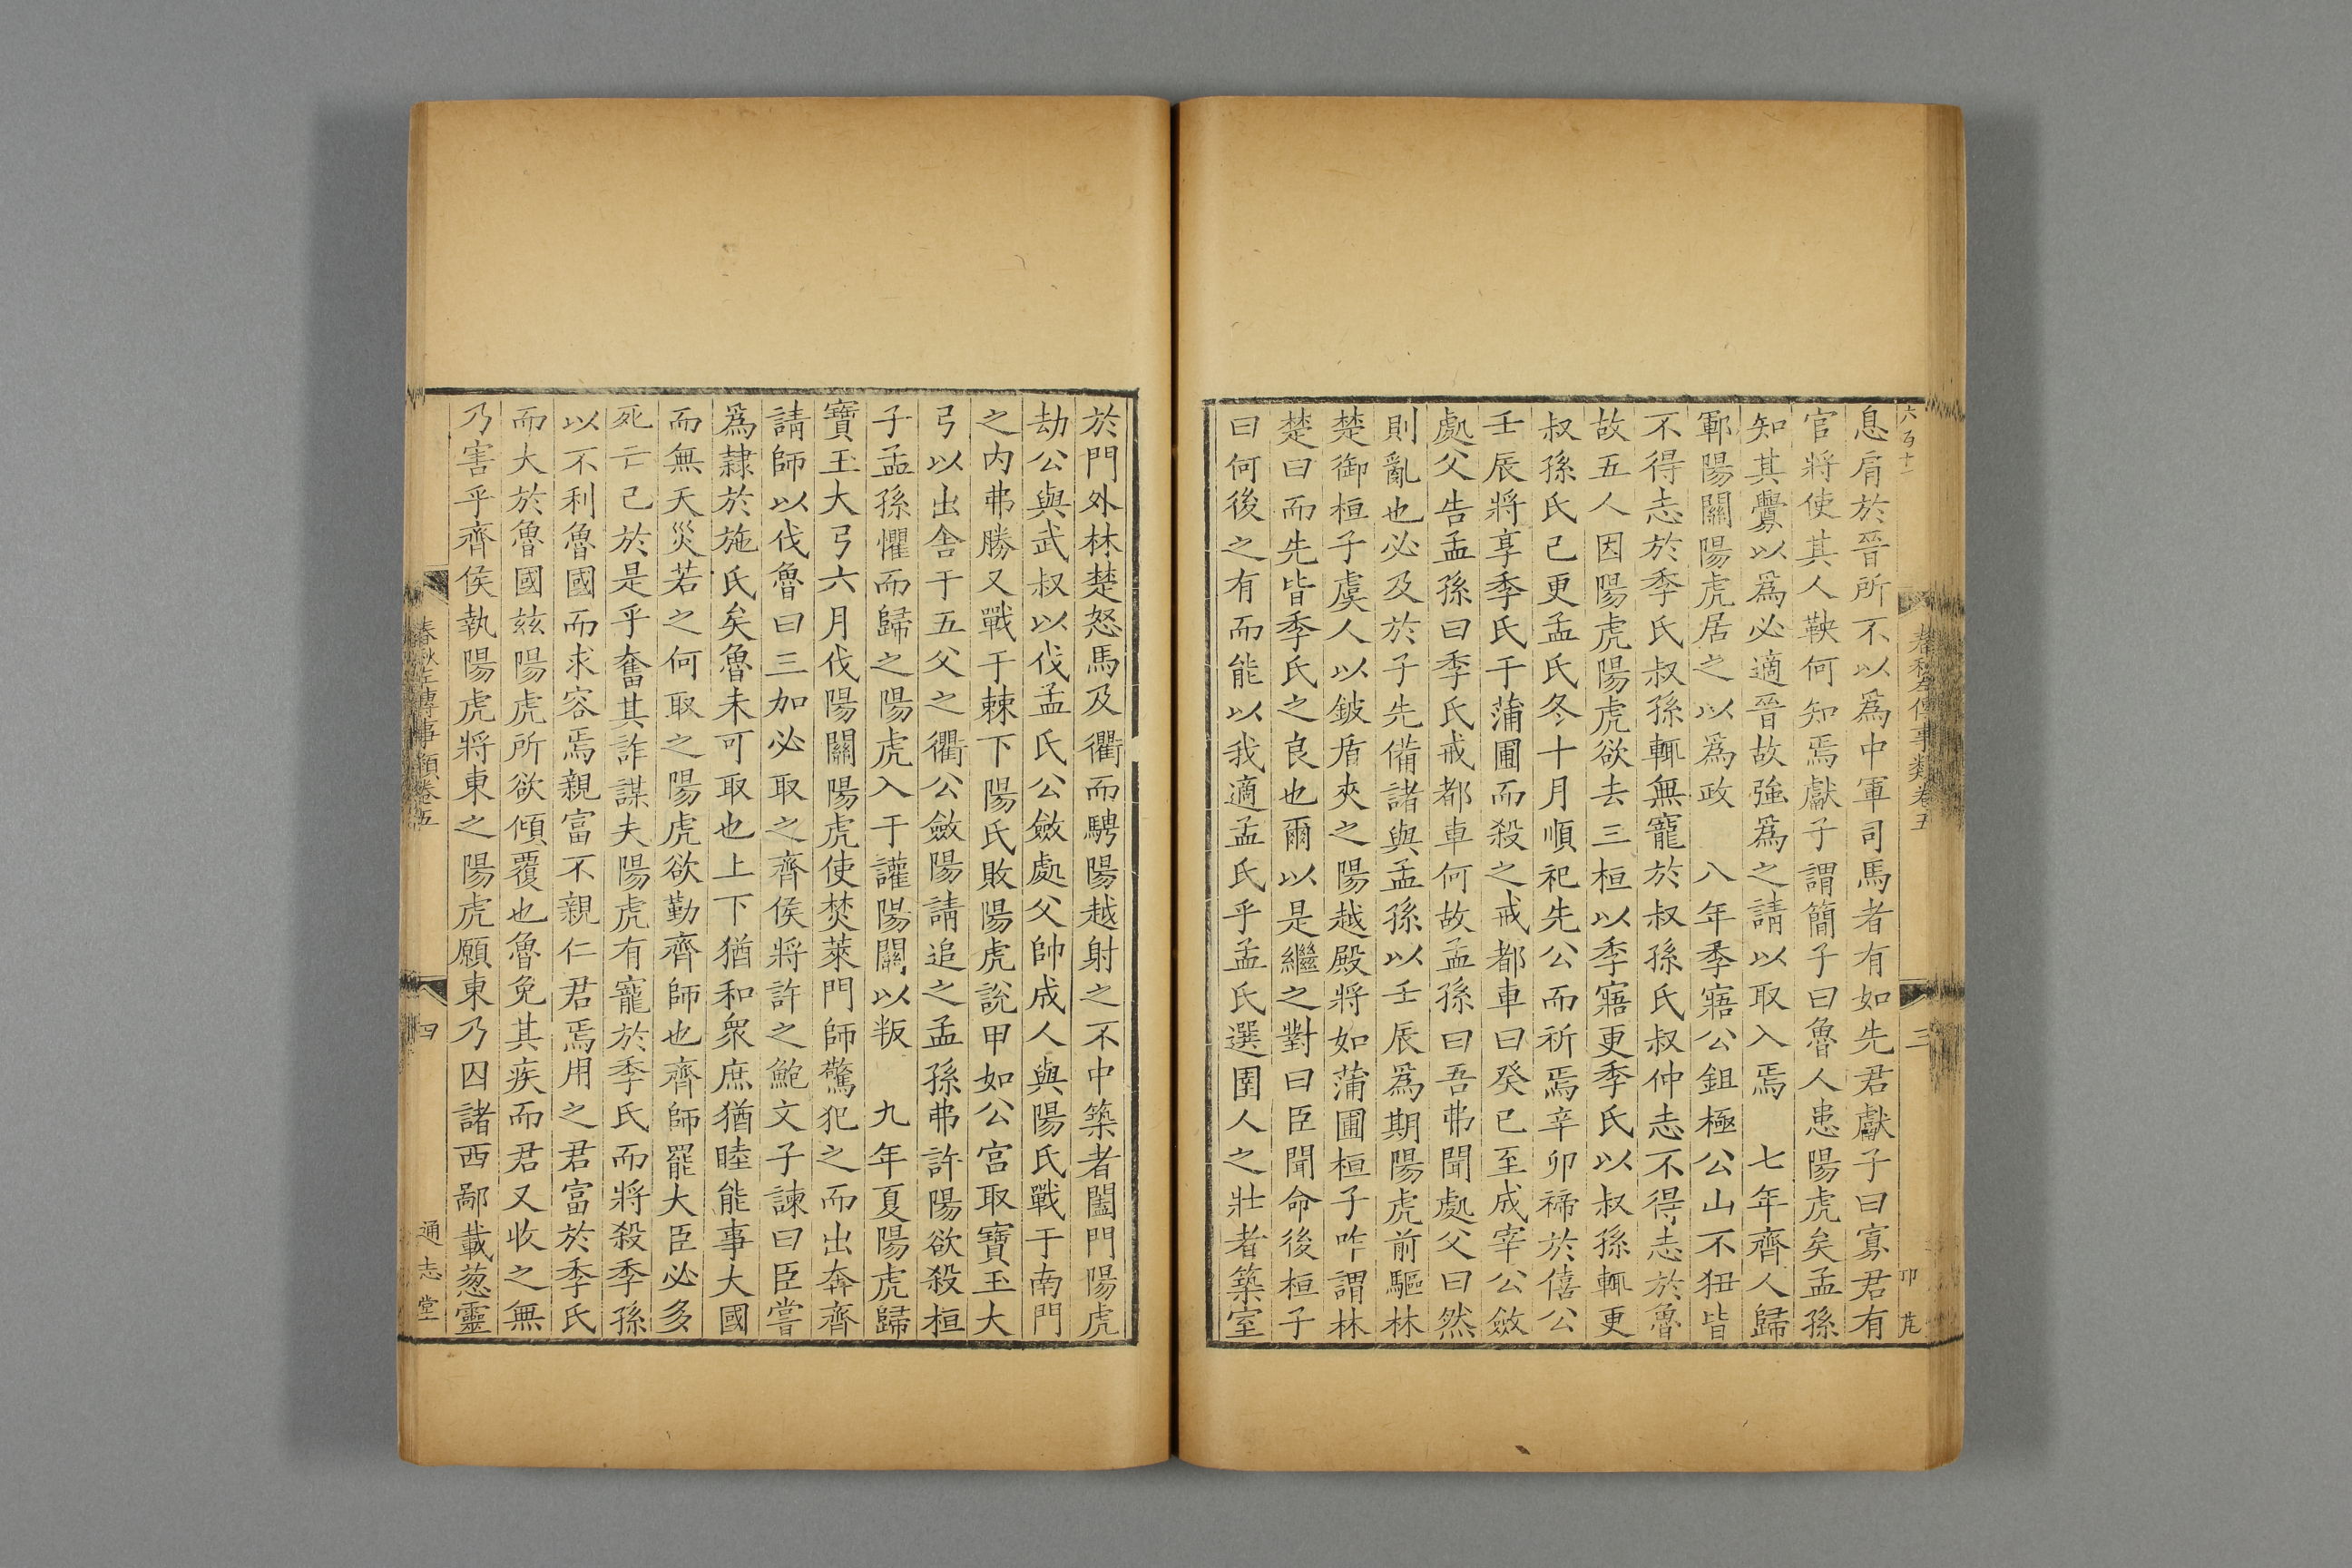 六百十一
春秋左傳事類卷五
三
息肩於晉所不以爲中軍司馬者有如先君獻子曰寡君有
官將使其人鞅何知焉獻子謂簡子曰魯人患陽虎矣孟孫
知其釁以爲必適晉故強爲之請以取入焉　七年齊人歸
鄆陽關陽虎居之以爲政　八年季寤公鉏極公山不狃皆
不得志於季氏叔孫輒無寵於叔孫氏叔仲志不得志於魯
故五人因陽虎陽虎欲去三桓以季寤更季氏以叔孫輒更
叔孫氏己更孟氏冬十月順祀先公而祈焉辛卯禘於僖公
壬辰將享季氏于蒲圃而殺之戒都車曰癸巳至成宰公斂
處父告孟孫曰季氏戒都車何故孟孫曰吾弗聞處父曰然
則亂也必及於子先備諸與孟孫以壬辰爲期陽虎前驅林
楚御桓子虞人以鈹盾夾之陽越殿將如蒲圃桓子咋謂林
楚曰而先皆季氏之良也爾以是繼之對曰臣聞命後桓子
曰何後之有而能以我適孟氏乎孟氏選圉人之壯者築室
於門外林楚怒馬及衢而騁陽越射之不中築者闔門陽虎
劫公與武叔以伐孟氏公斂處父帥成人與陽氏戰于南門
之内弗勝又戰于棘下陽氏敗陽虎說甲如公宮取寶玉大
弓以出舍于五父之衢公斂陽請追之孟孫弗許陽欲殺桓
子孟孫懼而歸之陽虎入于讙陽關以叛　九年夏陽虎歸
寶玉大弓六月伐陽關陽虎使焚萊門師驚犯之而出奔齊
請師以伐魯曰三加必取之齊侯將許之鮑文子諫曰臣嘗
爲隸於施氏矣魯未可取也上下猶和衆庶猶睦能事大國
而無天災若之何取之陽虎欲勤齊師也齊師罷大臣必多
死亡己於是乎奮其詐謀夫陽虎有寵於季氏而將殺季孫
以不利魯國而求容焉親富不親仁君焉用之君富於季氏
而大於魯國兹陽虎所欲傾覆也魯免其疾而君又收之無
乃害乎齊侯執陽虎將東之陽虎願東乃囚諸西鄙載葱靈
春秋左傳事類卷五
四
通志堂